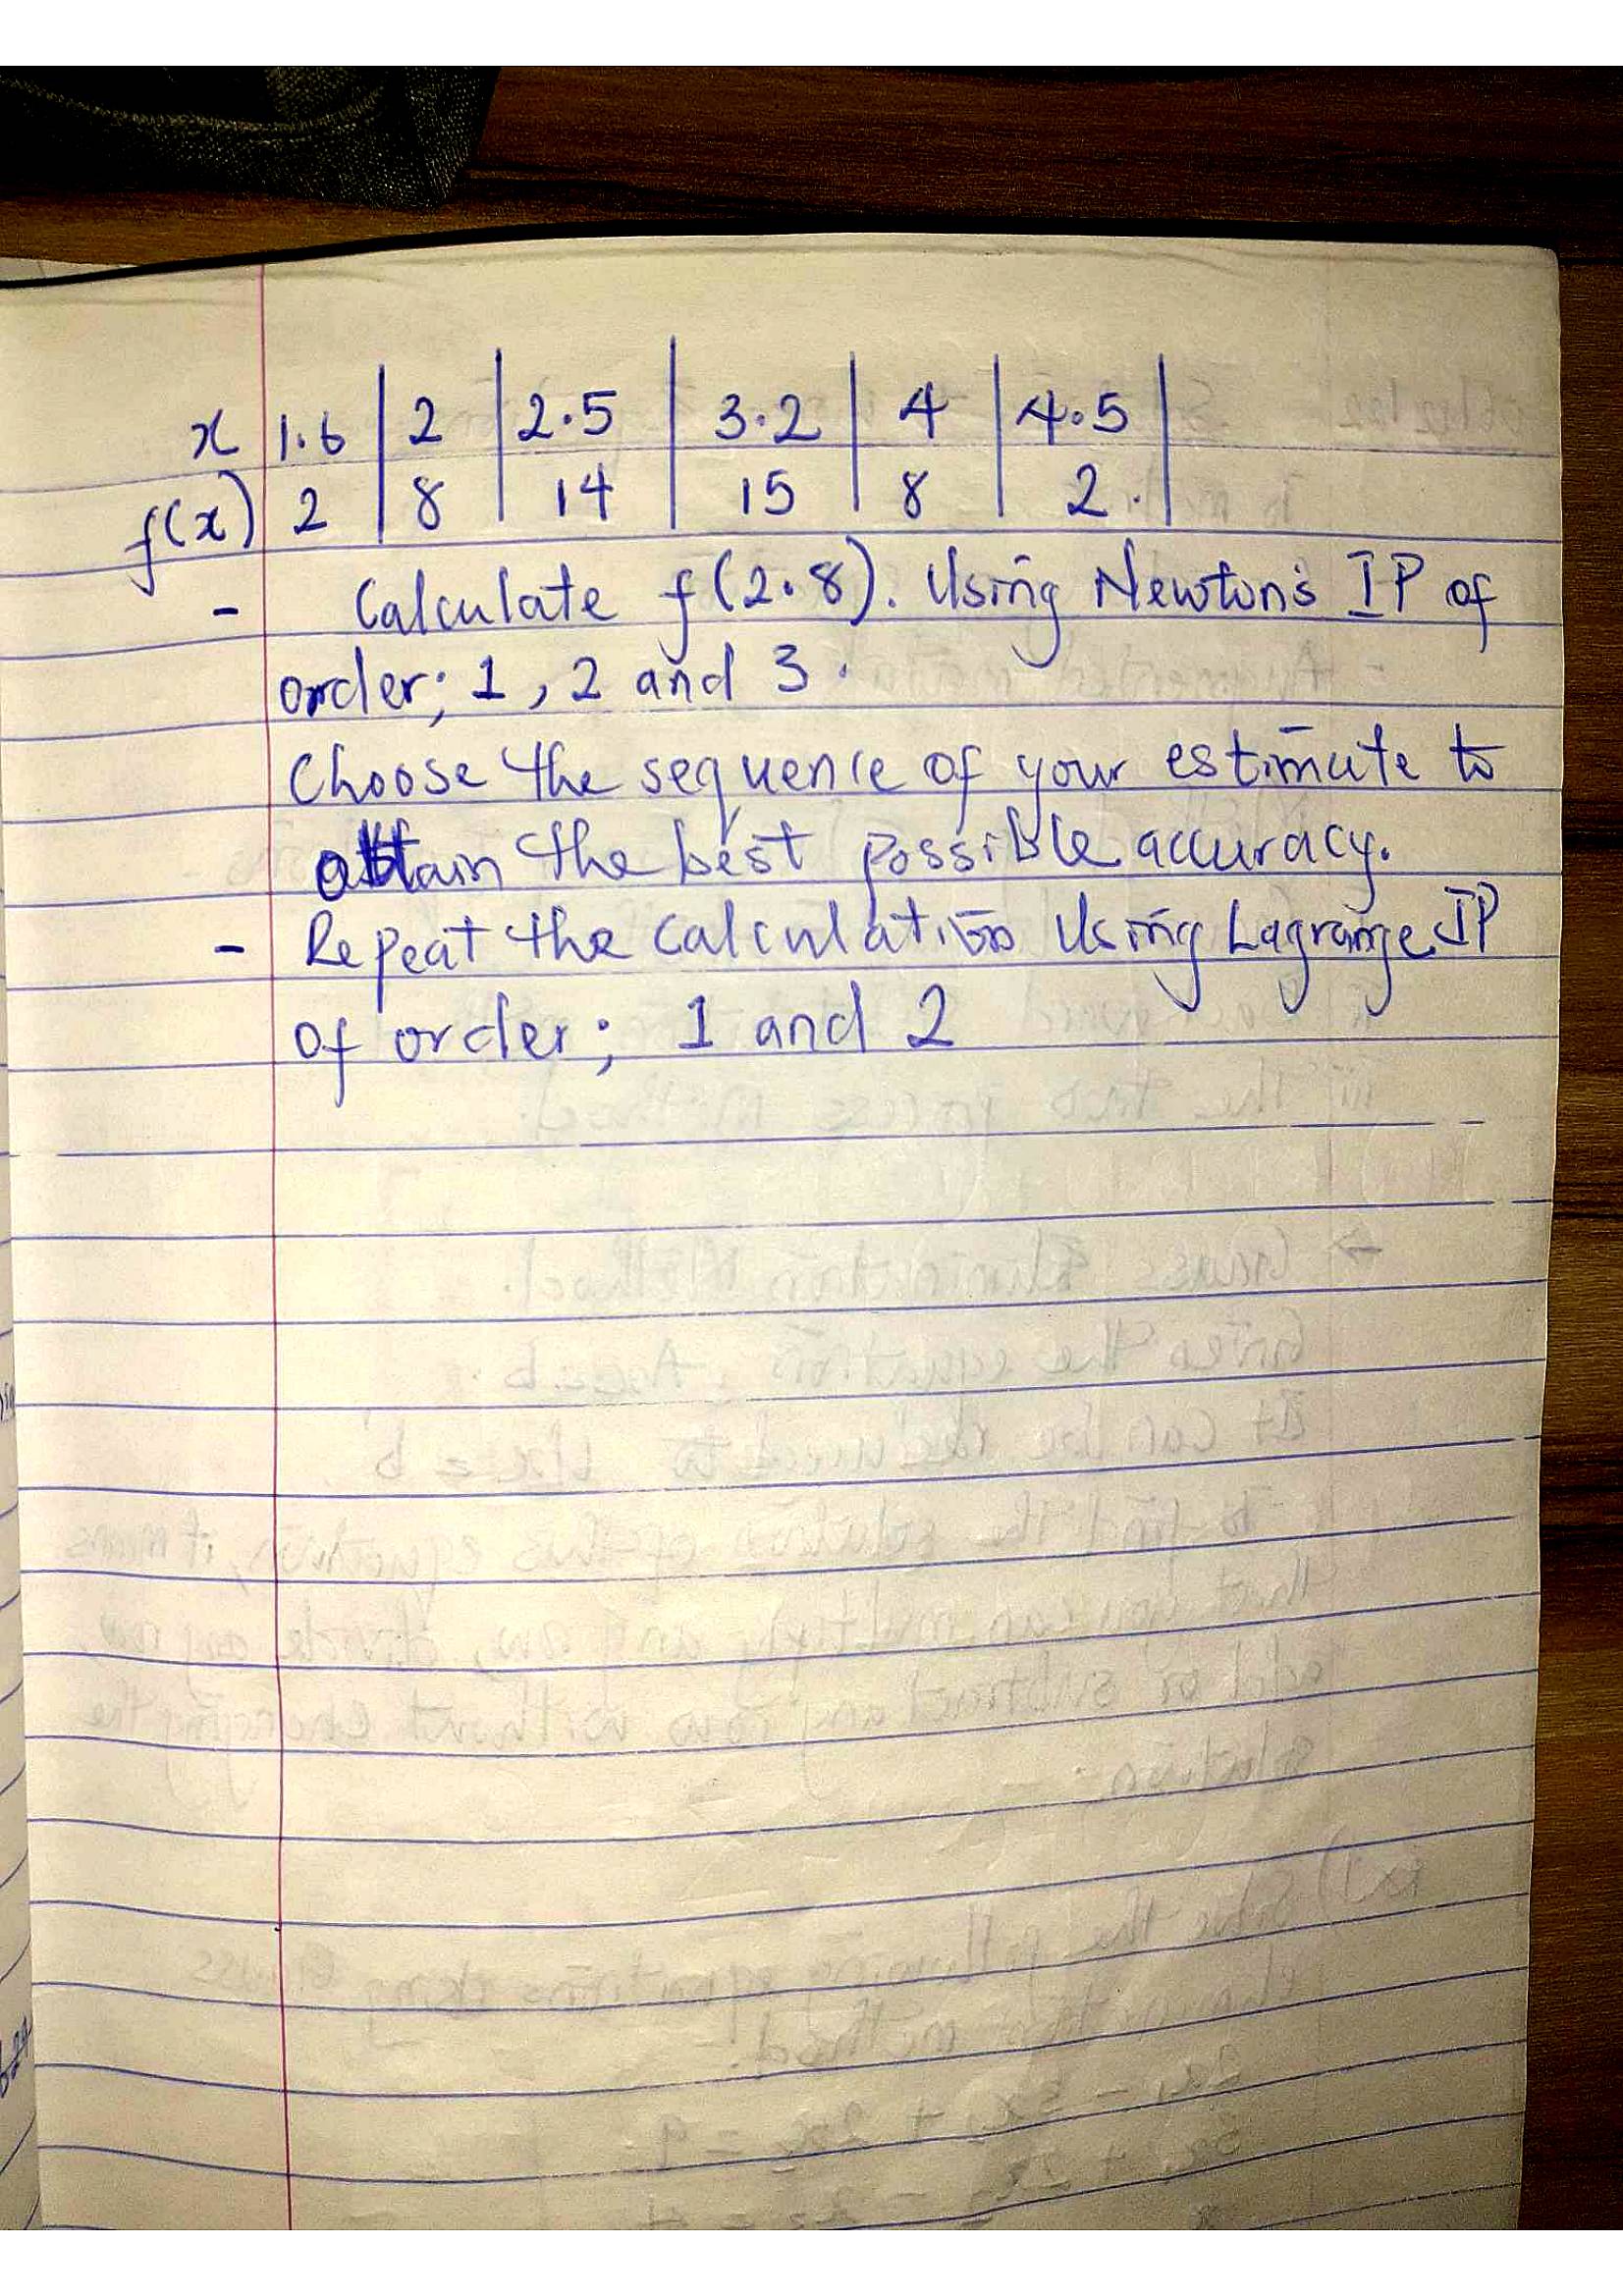 x 1.6 2 2.5 3.2 4 4.5
f(x) 2 8 14 15 8 2.
- Calculate f(2.8). Using Newton's IP of
order; 1, 2 and 3.
Choose the sequence of your estimate to
obtain the best possible accuracy.
- Repeat the calculation Using Lagrange IP
of order; 1 and 2